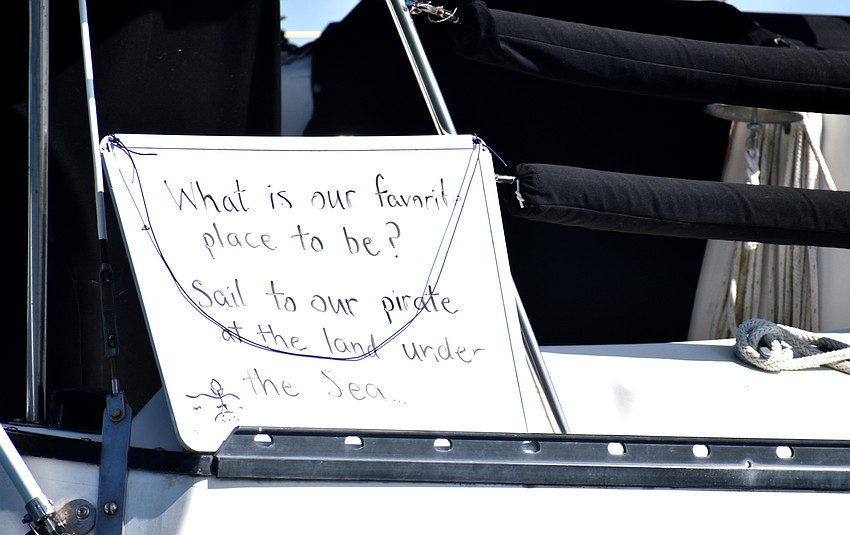 What is our favorit
place to be?
Sail to our pirate
at the land under
the Sea...